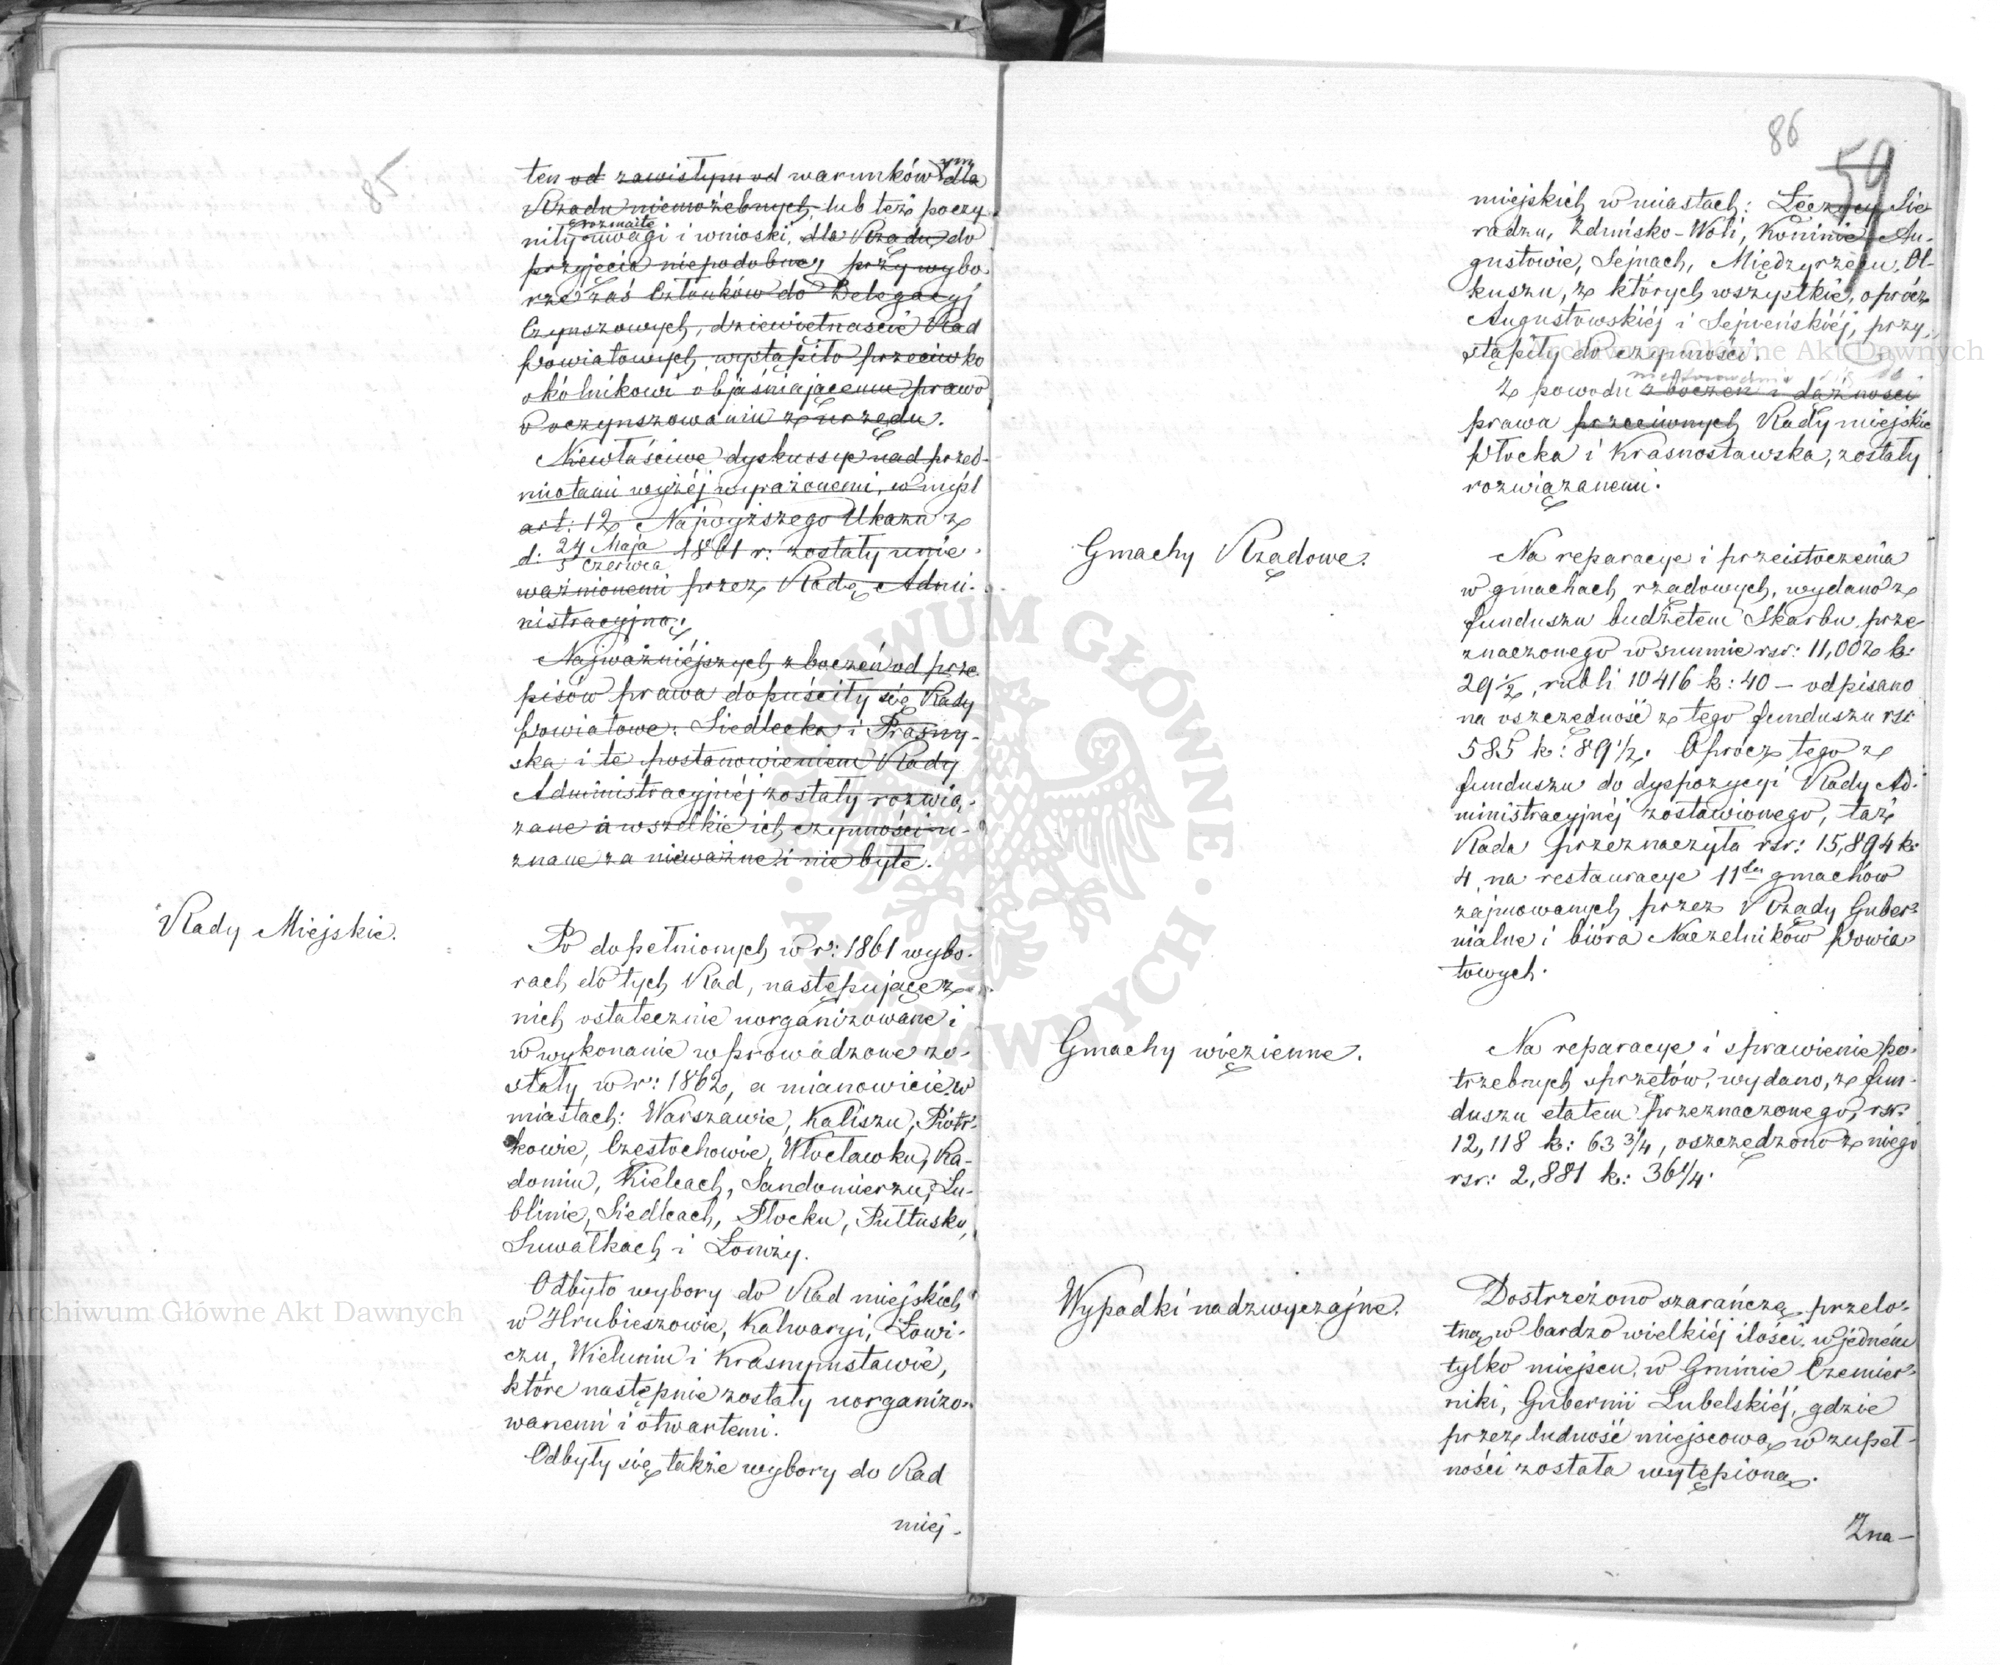 85
ten od zawisłym od warunków dla
Rządu niemożebnych, lub też poczy
rozmaite
niły uwagi i wnioski, dla Rządu do
przyjęcia niepodobne, przy wybo-
rze zaś Członków do Delegacyj
Czynszowych, dziewiętnaście Rad
Powiatowych, wystąpiło przeciwko
okólnikowi objaśniającemu prawo
o oczynszowaniu z urzędu.
Niewłaściwe dyskussye nad przed-
miotami wyżej wyrażonemi, w myśl
art: 12 Najwyższego Ukazu z
d. 24 Maja / 5 Czerwca 1861 r: zostały unie-
ważnionemi przez Radę Admi-
nistracyjną.
Najważniejszych zboczeń od prze
pisów prawa dopuściły się Rady
Powiatowe: Siedlecka i Prasny-
ska i te postanowieniem Rady
Administracyjnéj zostały rozwią-
zane a wszelkie ich czynności u-
znane za nieważne i nie byłe.
Rady Miejskie.
Po dopełnionych w r: 1861 wybo-
rach do tych Rad, następujące z
nich ostatecznie uorganizowane i
w wykonanie wprowadzone zo-
stały w r: 1862, a mianowicie w
miastach: Warszawie, Kaliszu, Piotr-
kowie, Częstochowie, Włocławku, Ra-
domiu, Kielcach, Sandomierzu, Lu-
blinie, Siedlcach, Płocku, Pułtusku,
Suwałkach i Łomży.
Odbyto wybory do Rad miejskich
w Hrubieszowie, Kalwaryi, Łowi-
czu, Wieluniu i Krasnymstawie,
które następnie zostały uorganizo-
wanemi i otwartemi.
Odbyły się także wybory do Rad
miej-
86
59
miejskich w miastach: Łęczycy, Sie
radzu, Zduńsko-Woli, Koninie, Au-
gustowie, Sejnach, Międzyrzecu, Ol-
kuszu, z których wszystkie, oprócz
Augustowskiéj i Sejneńskiéj, przy-
stąpiły do czynności.
Z powodu zboczeń i dążności
prawa przeciwnych Rady miejskie
Płocka i Krasnostawska, zostały
rozwiązanemi.
Gmachy Rządowe.
Na reparacye i przeistoczenia
w gmachach rządowych, wydano z
funduszu budżetem Skarbu prze
znaczonego w summie rsr: 11,002 k:
29 1/2, rubli 10416 k: 40 – odpisano
na oszczędność z tego funduszu rsr
585 k: 89 1/2. Oprócz tego z
funduszu do dyspozycyi Rady Ad-
ministracyjnéj zostawionego, taż
Rada przeznaczyła rsr: 15,894 k:
4, na restauracye 11tu gmachów
zajmowanych przez Rządy Guber-
nialne i bióra Naczelników Powia-
towych.
Gmachy więzienne.
Na reparacye i sprawienie po-
trzebnych sprzętów, wydano, z fun-
duszu etatem przeznaczonego, rsr:
12,118 k: 63 3/4, oszczędzono z niego
rsr: 2,881 k: 36 1/4.
Wypadki nadzwyczajne.
Dostrzeżono szarańczę przelo-
tną w bardzo wielkiéj ilości w jedném
tylko miejscu, w Gminie Czemier-
niki, Gubernii Lubelskiéj, gdzie
przez ludność miejscową w zupeł-
ności została wytępioną.
Zna-
Archiwum Główne Akt Dawnych
Archiwum Główne Akt Dawnych
ARCHIWUM GŁÓWNE AKT DAWNYCH